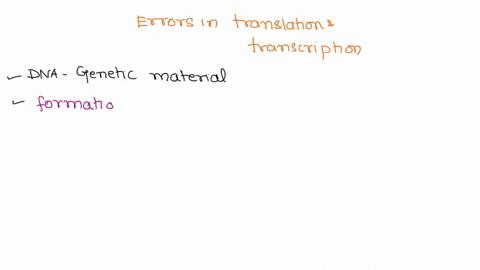 Errors in translation &
transcription
✓ DNA - Genetic material
✓ formatio